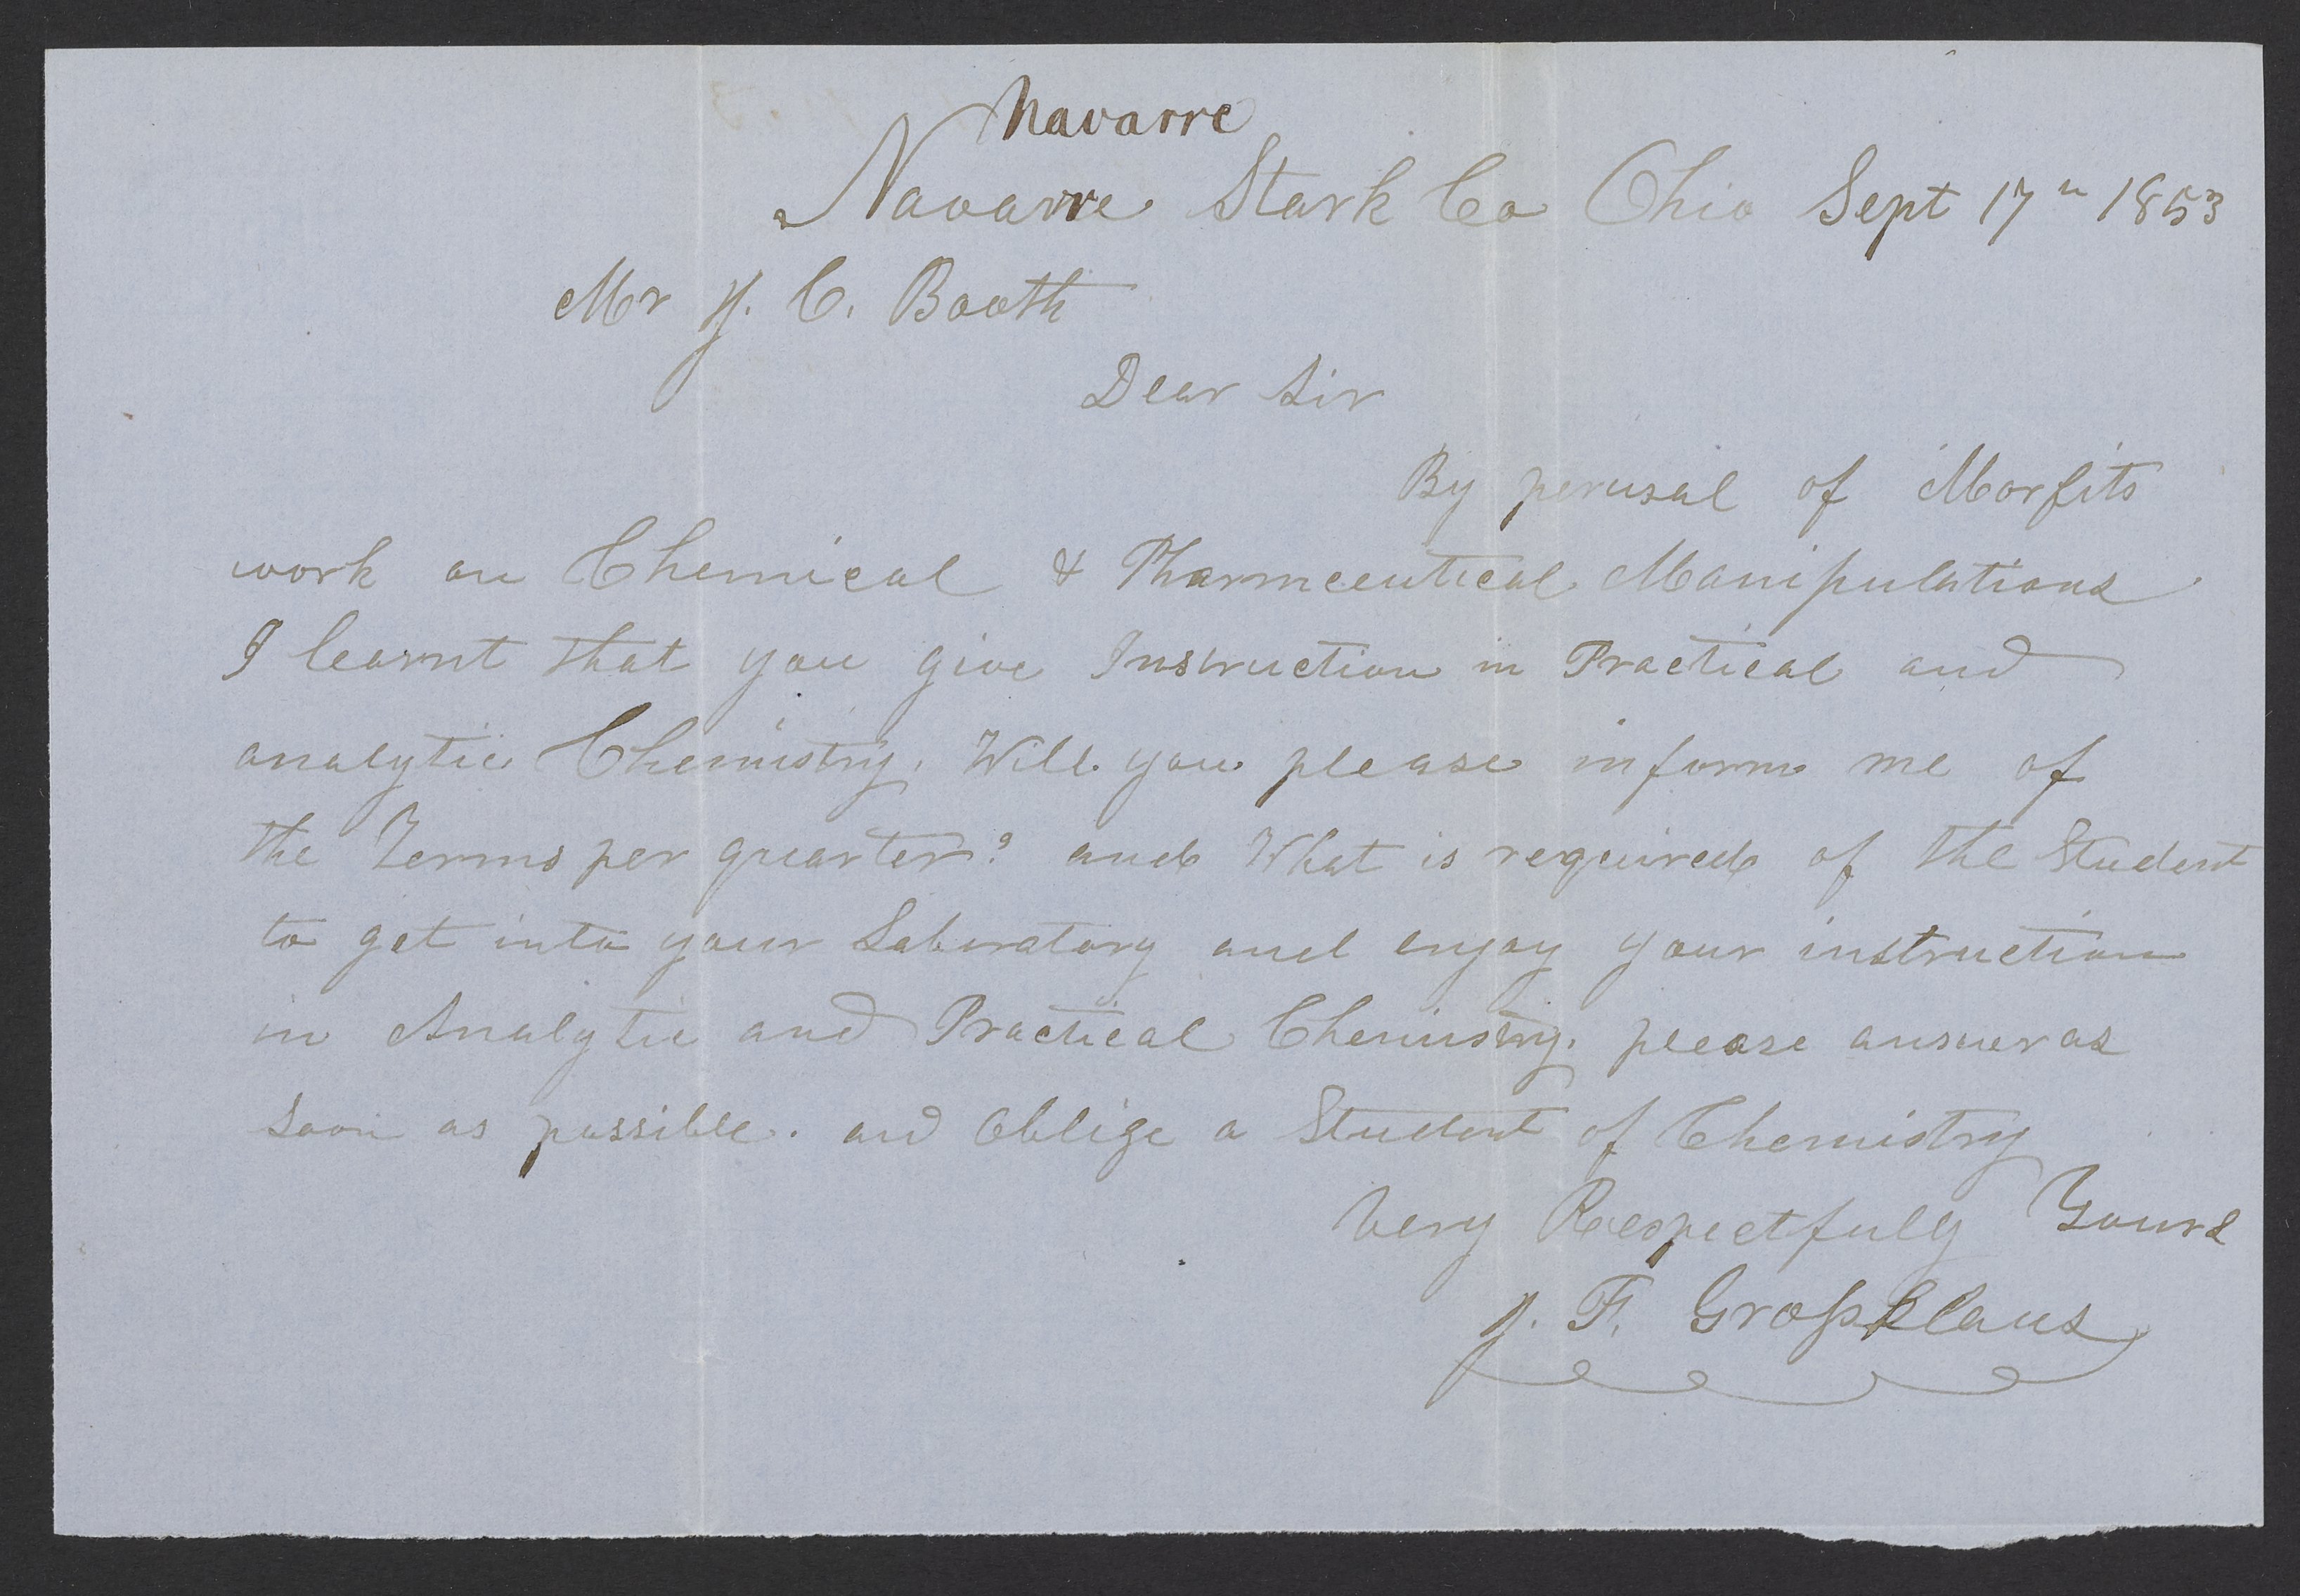 Navarre
Navarre Stark Co Ohio Sept 17th 1853
Mr J. C. Booth
Dear Sir
By perusal of Morfits
work on Chemical & Pharmceutical Manipulations
I learnt that you give Instruction in Practical and
analytic Chemistry. Will you please inform me of
the Terms per quarter? and What is required of the Student
to get into your Laboratory and enjoy your instruction
in Analytic and Practical Chemistry. please answer as
soon as possible. and Oblige a Student of Chemistry
Very Respectfuly Yours
J. F. Grossklaus